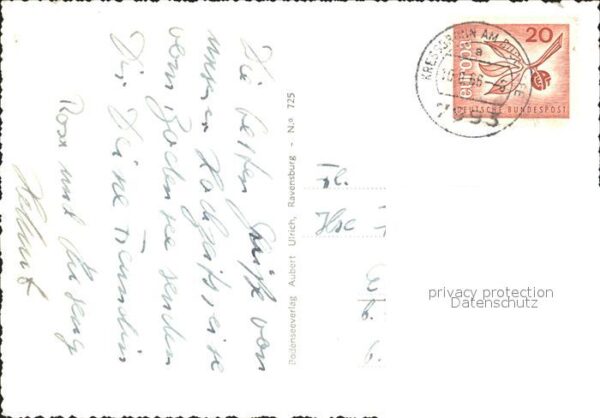 Die besten Grüße von
unserer Hochzeitsreise
vom Bodensee senden
Dir Deine Freundin
Rosa und
Helmut
Bodenseeverlag Aubert Ulrich, Ravensburg - N.º 725
Fl.
KRESSBRONN AM BODENSEE
a
7993
20
europa
DEUTSCHE BUNDESPOST
privacy protection
Datenschutz